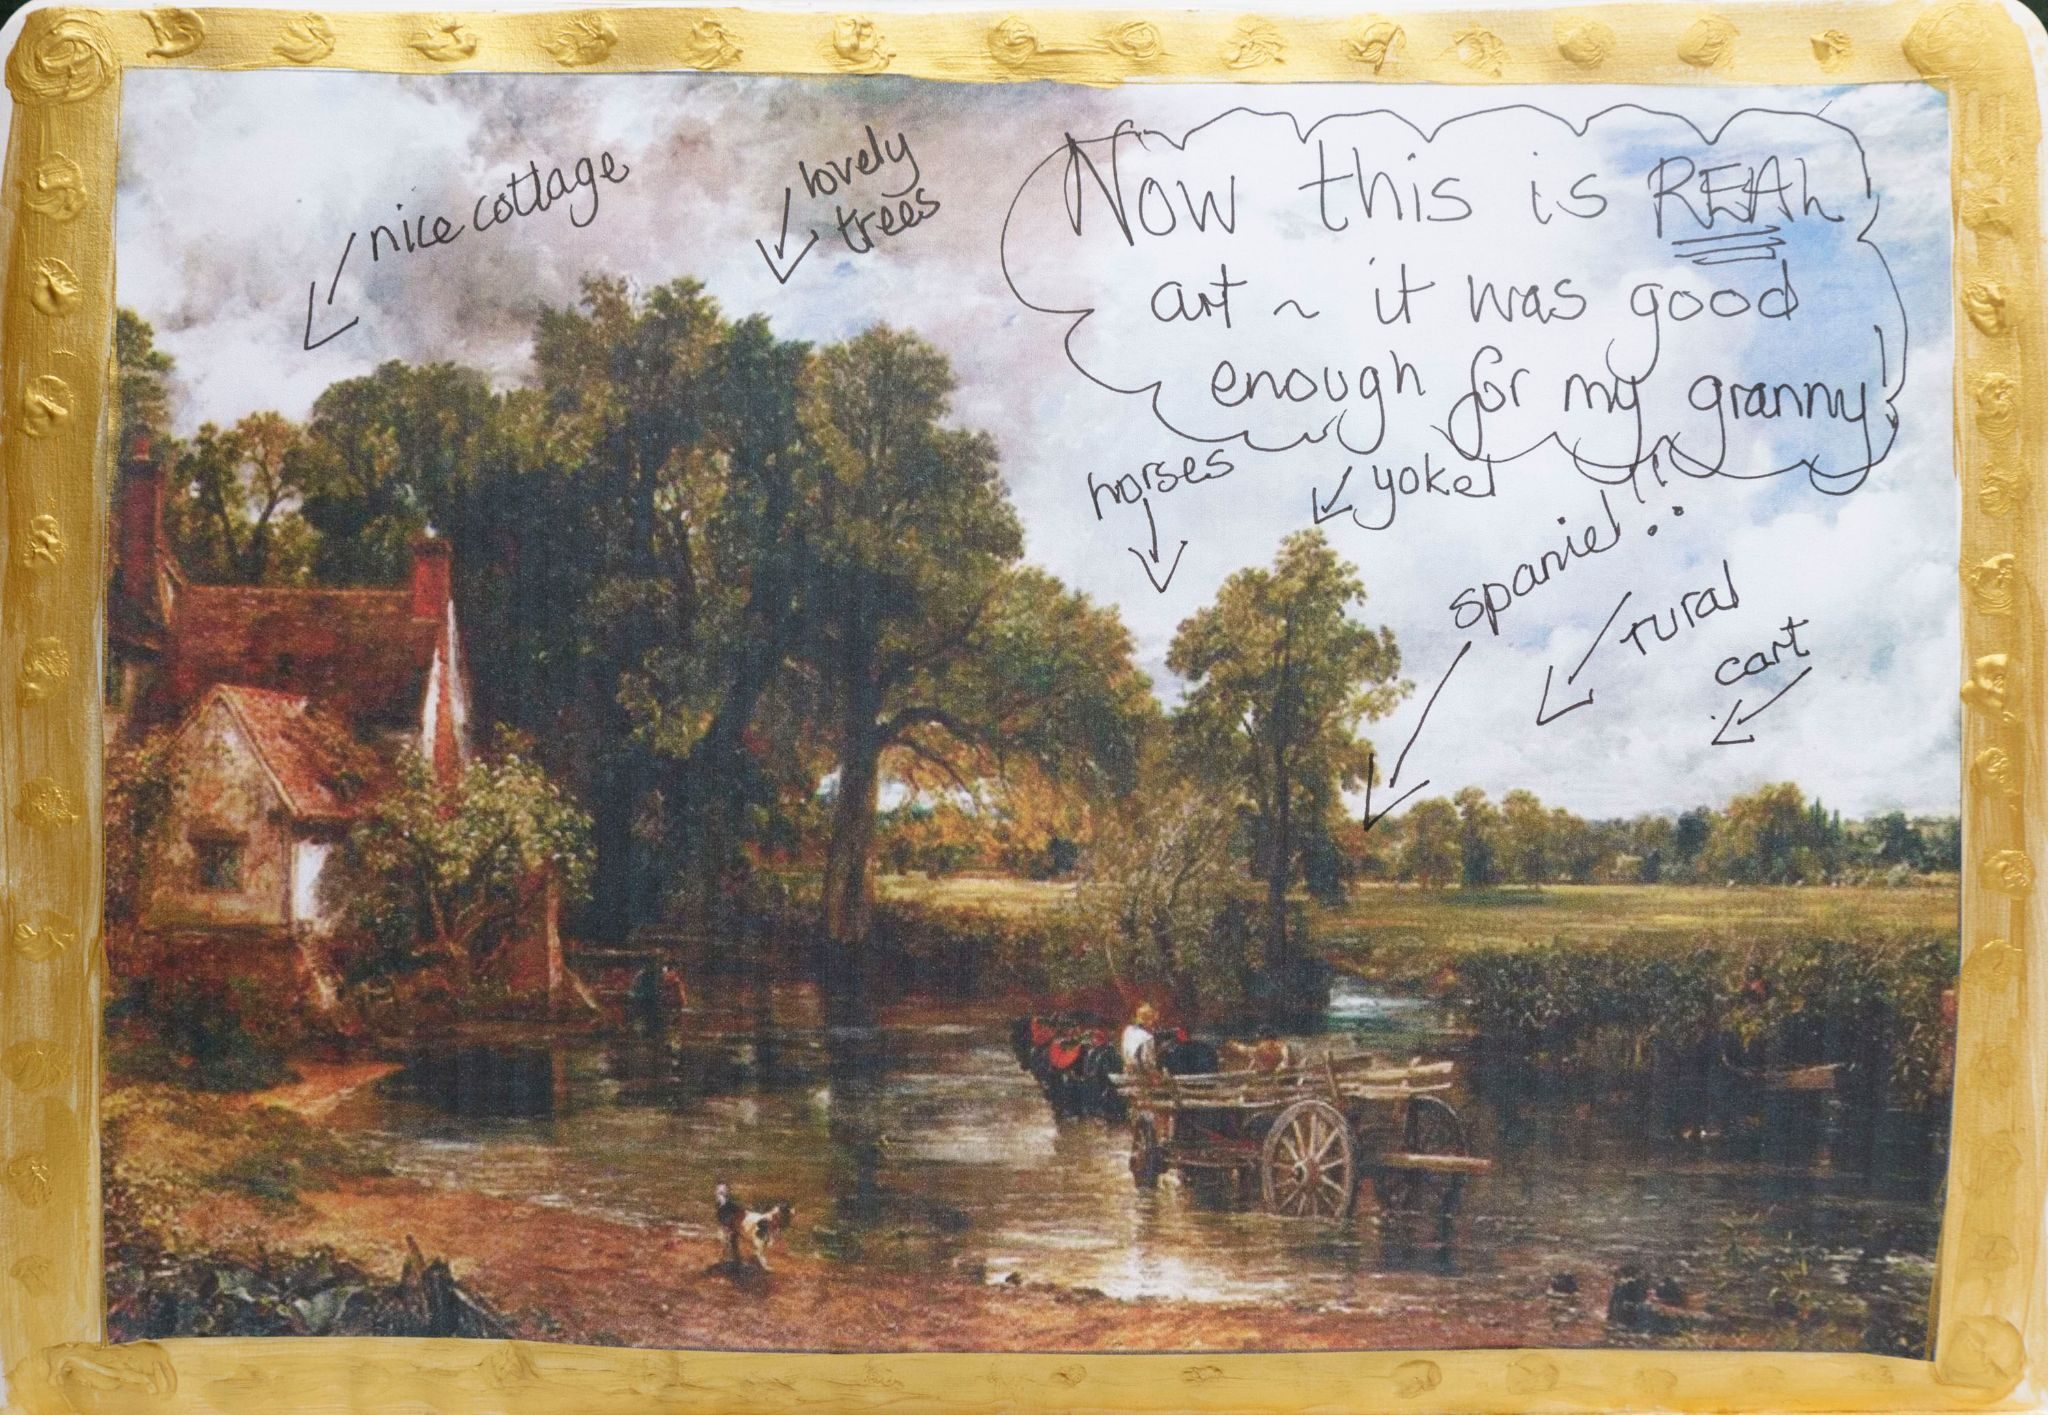 nice cottage
lovely
trees
Now this is REAL
art ~ it was good
enough for my granny!
horses
yokel
spaniel!!
rural
cart